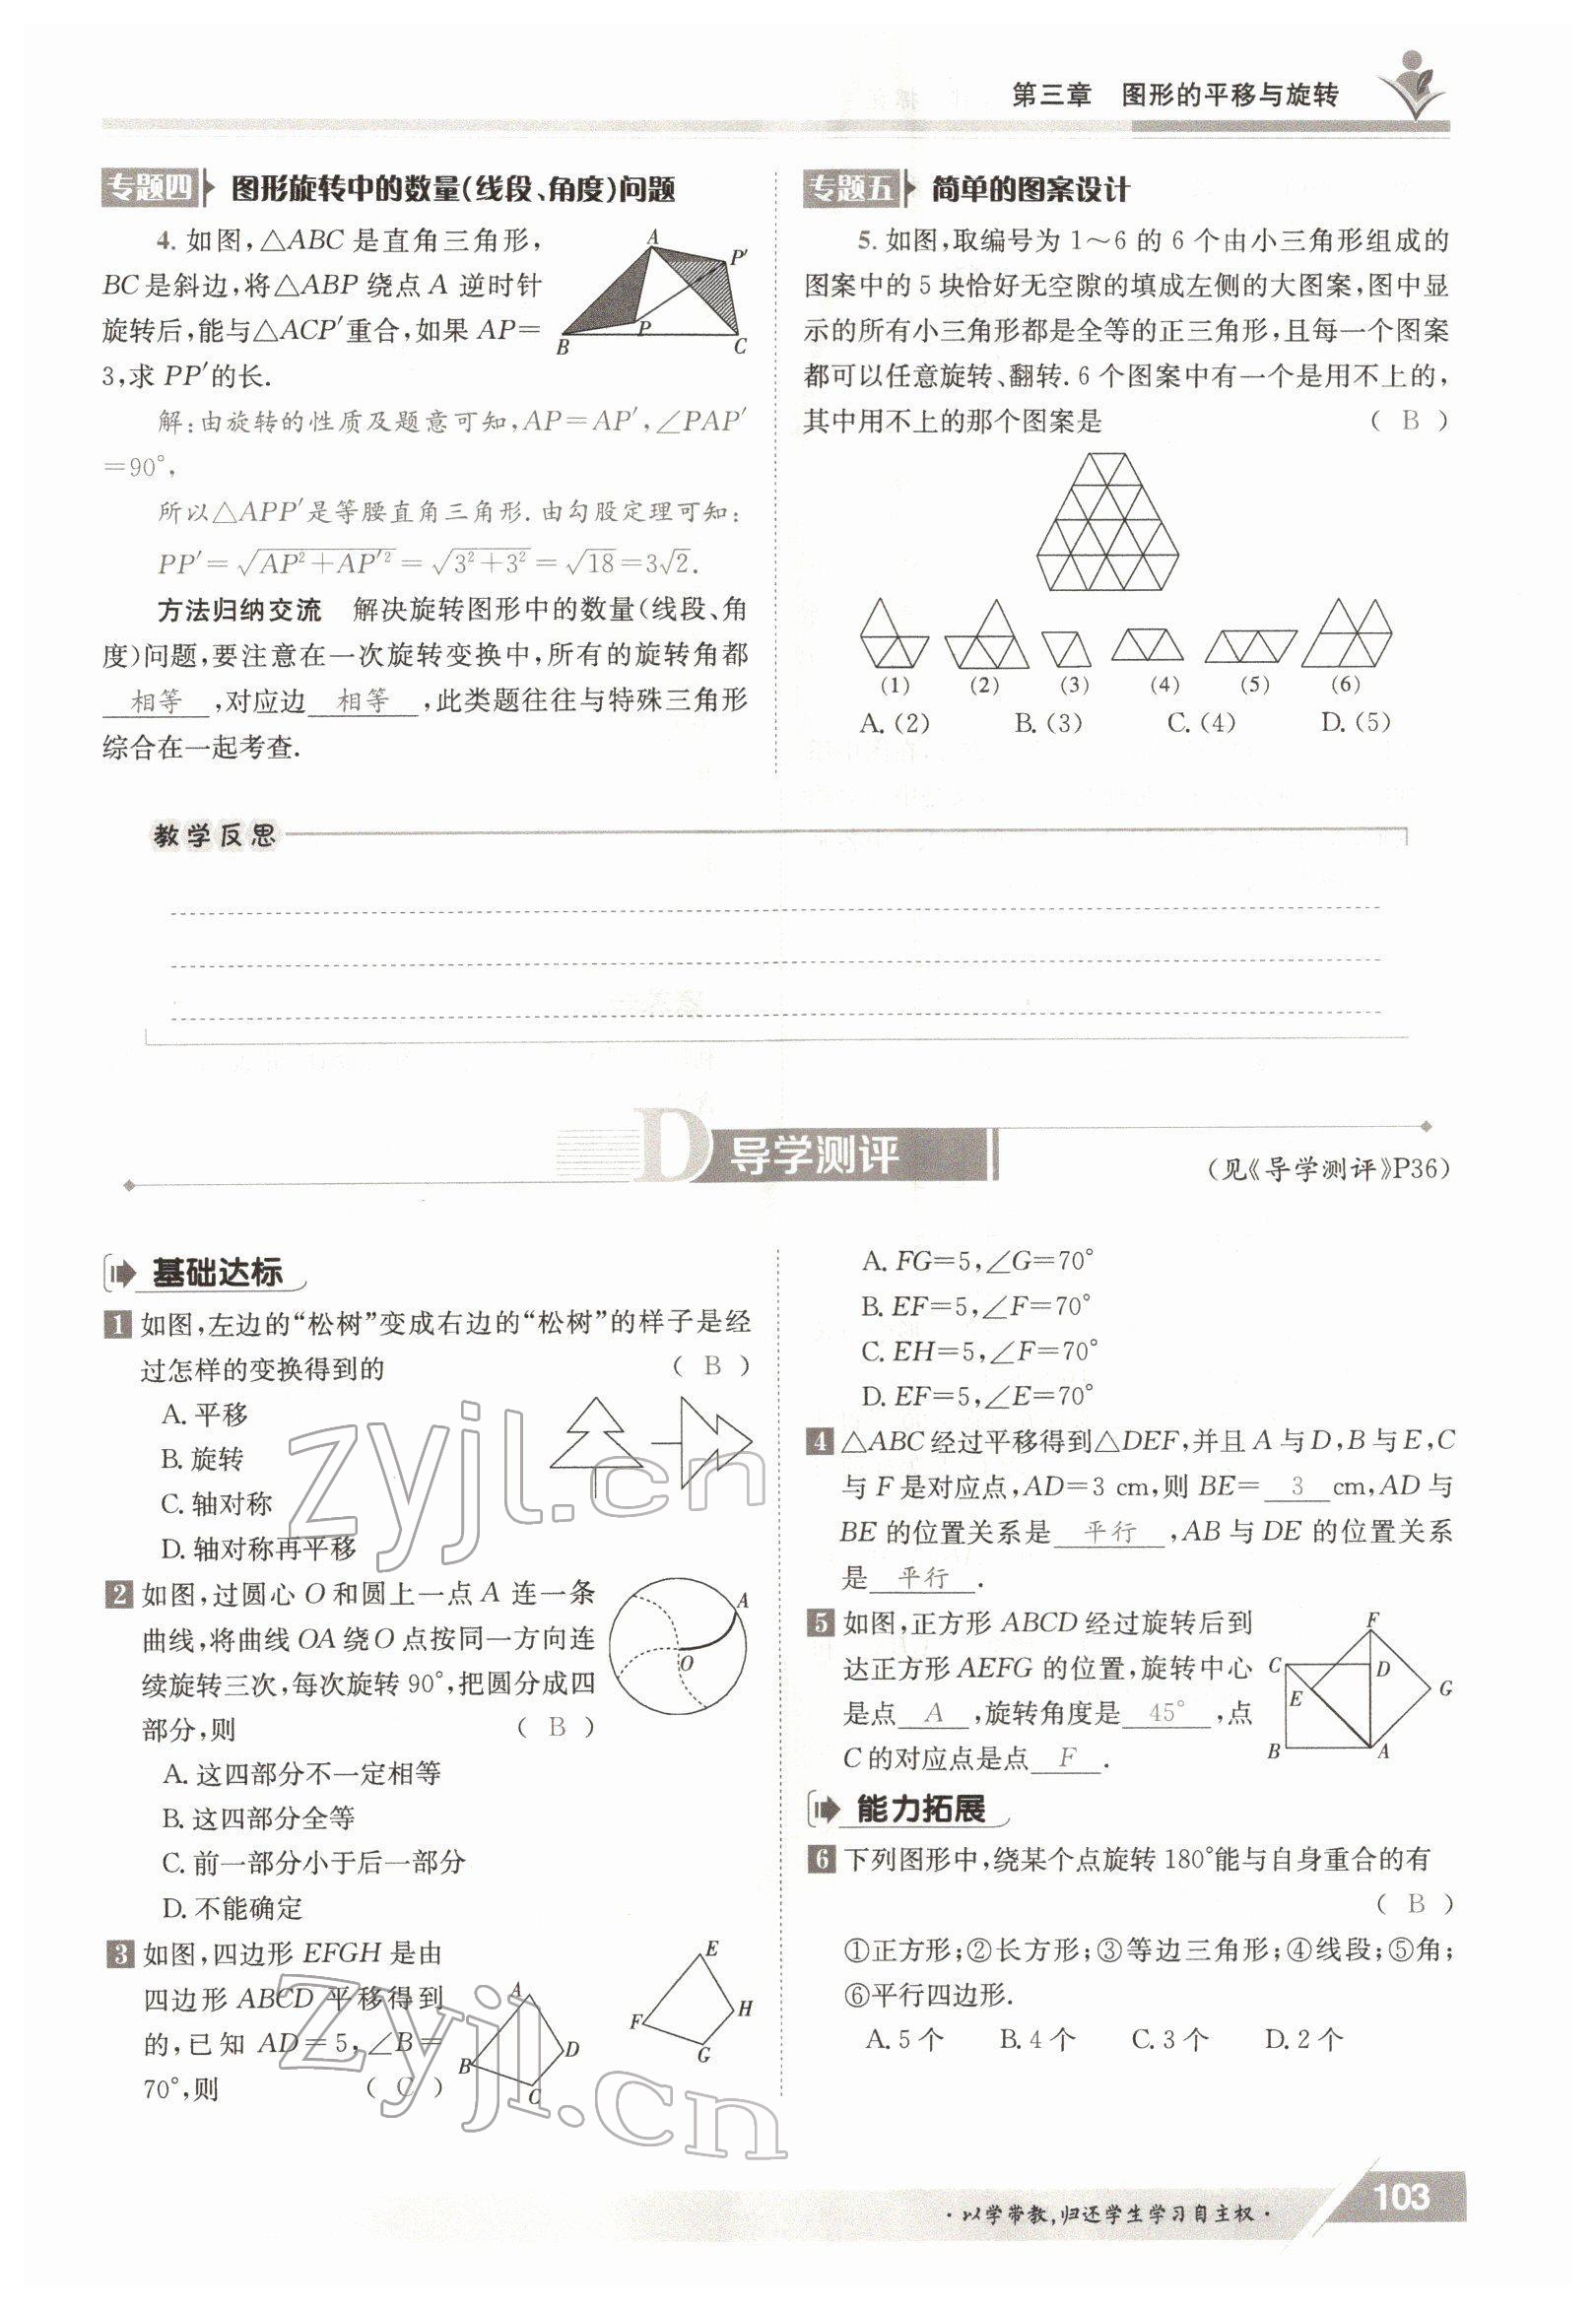 第三章 图形的平移与旋转
专题四 图形旋转中的数量(线段、角度)问题
4. 如图,△ABC 是直角三角形,
BC是斜边,将△ABP 绕点 A 逆时针
旋转后,能与△ACP′重合,如果 AP=
3,求 PP′的长.
A
P′
P
B
C
解:由旋转的性质及题意可知,AP=AP′,∠PAP′
=90°,
所以△APP′是等腰直角三角形.由勾股定理可知:
PP′=√(AP²+AP′²)=√(3²+3²)=√18=3√2.
方法归纳交流 解决旋转图形中的数量(线段、角
度)问题,要注意在一次旋转变换中,所有的旋转角都
相等 ,对应边 相等 ,此类题往往与特殊三角形
综合在一起考查.
专题五 简单的图案设计
5. 如图,取编号为 1～6 的 6 个由小三角形组成的
图案中的 5 块恰好无空隙的填成左侧的大图案,图中显
示的所有小三角形都是全等的正三角形,且每一个图案
都可以任意旋转、翻转. 6 个图案中有一个是用不上的,
其中用不上的那个图案是 ( B )
(1) (2) (3) (4) (5) (6)
A. (2) B. (3) C. (4) D. (5)
教学反思
D 导学测评
(见《导学测评》P36)
基础达标
1 如图,左边的“松树”变成右边的“松树”的样子是经
过怎样的变换得到的 ( B )
A. 平移
B. 旋转
C. 轴对称
D. 轴对称再平移
2 如图,过圆心 O 和圆上一点 A 连一条
曲线,将曲线 OA 绕 O 点按同一方向连
续旋转三次,每次旋转 90°,把圆分成四
部分,则 ( B )
A
O
A. 这四部分不一定相等
B. 这四部分全等
C. 前一部分小于后一部分
D. 不能确定
3 如图,四边形 EFGH 是由
四边形 ABCD 平移得到
的,已知 AD=5,∠B=
70°,则 ( C )
A
B
C
D
E
F
G
H
A. FG=5,∠G=70°
B. EF=5,∠F=70°
C. EH=5,∠F=70°
D. EF=5,∠E=70°
4 △ABC 经过平移得到△DEF,并且 A 与 D,B 与 E,C
与 F 是对应点,AD=3 cm,则 BE= 3 cm,AD 与
BE 的位置关系是 平行 ,AB 与 DE 的位置关系
是 平行 .
5 如图,正方形 ABCD 经过旋转后到
达正方形 AEFG 的位置,旋转中心
是点 A ,旋转角度是 45° ,点
C 的对应点是点 F .
F
C
D
E
G
B
A
能力拓展
6 下列图形中,绕某个点旋转 180°能与自身重合的有
( B )
①正方形;②长方形;③等边三角形;④线段;⑤角;
⑥平行四边形.
A. 5 个 B. 4 个 C. 3 个 D. 2 个
zyjl.cn
zyjl.cn
·以学带教,归还学生学习自主权·
103